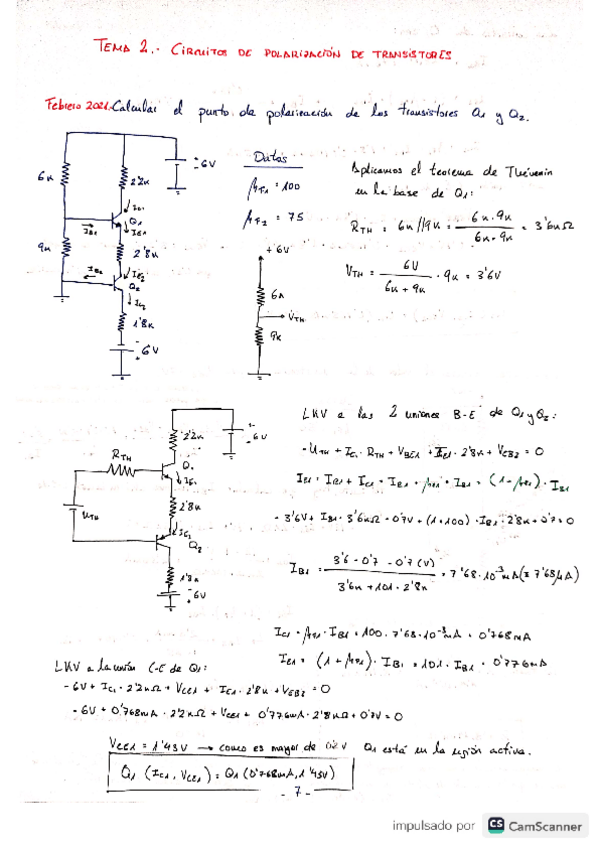 TEMA 2.- CIRCUITOS DE POLARIZACIÓN DE TRANSISTORES
Febrero 2021. Calcular el punto de polarización de los transistores Q1 y Q2.
6V
6k
2'2k
IC1
Q1
IB1
IE1
9k
2'8k
IB2
IE2
Q2
IC2
1'8k
6V
Datos
βF1 = 100
βF2 = 75
+6V
6k
VTH
9k
Aplicamos el teorema de Thévenin
en la base de Q1:
RTH = 6k//9k = 6k·9k / 6k·9k = 3'6kΩ
VTH = 6V / 6k + 9k · 9k = 3'6V
LKV a las 2 uniones B-E de Q1 y Q2:
2'2k
6V
RTH
Q1
IE1
2'8k
UTH
IE2
Q2
1'8k
6V
-UTH + IC1 · RTH + VBE1 + IE1 · 2'8k + VEB2 = 0
IE1 = IB1 + IC1 = IB1 + βF1 · IB1 = (1+βF1) · IB1
- 3'6V + IB1 · 3'6kΩ - 0'7V + (1+100) · IB1 · 2'8k + 0'7 = 0
IB1 = 3'6 - 0'7 - 0'7 (V) / 3'6k + 101 · 2'8k = 7'68·10⁻³mA (= 7'68μA)
IC1 = βF1 · IB1 = 100 · 7'68·10⁻³mA = 0'768mA
IE1 = (1+βF1) · IB1 = 101 · IB1 = 0'776mA
LKV a la unión C-E de Q1:
-6V + IC1 · 2'2kΩ + VCE1 + IE1 · 2'8k + VEB2 = 0
-6V + 0'768mA · 2'2kΩ + VCE1 + 0'776mA · 2'8kΩ + 0'7V = 0
VCE1 = 1'43V → como es mayor de 0'2V Q1 está en la región activa.
Q1 (IC1, VCE1) = Q1 (0'768mA, 1'43V)
- 7 -
impulsado por CS CamScanner